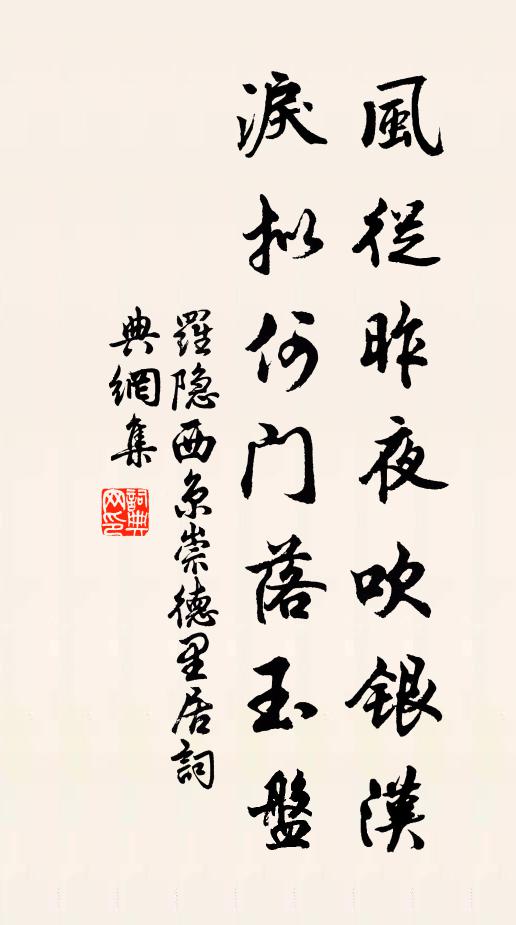 風從昨夜吹銀漢
淚拟何门落玉盤
羅隐西京崇德里居詞
典網集
詞典网印